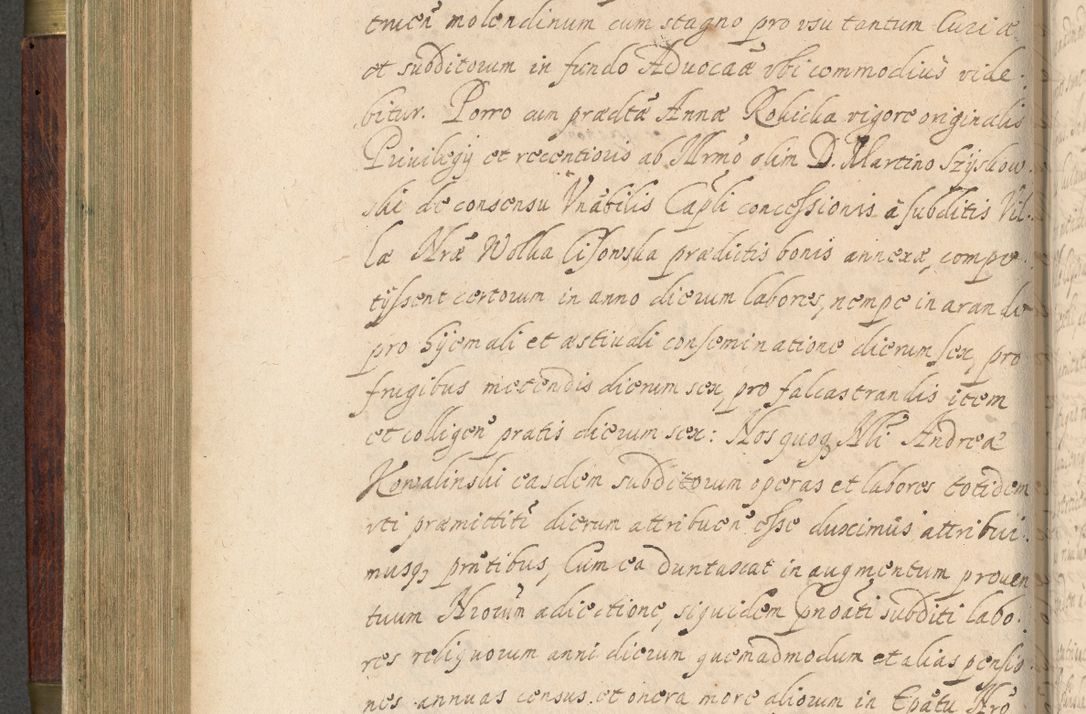 truen̄ molendinum cum stagno pro vsu tantum Curiæ
et subditorum in fundo Aduocatiæ vbi commodius vide-
bitur. Porro cum prædtæ Annæ Rokicka vigore originalis
Priuilegij et recentioris ab Illrmo olim D. Martino Szyskow-
ski de consensu Vnābilis Capli concessionis à subditis Vil-
læ Nræ Wolka Cisowska prædictis bonis annexæ, compe-
tijssent certorum in anno dierum labores, nempe in arando
pro hyemali et æstiuali conseminatione dierum sex, pro
frugibus metendis dierum sex, pro falcastrandis item
et colligen̄ pratis dierum sex: Nos quoq Nli Andreæ
Kowalinski easdem subditorum operas et labores totidem
vti præmittitr̄ dierum attribuen̄ esse duximus attribui-
musq3 pn̄tibus, Cum ea duntaxat in augmentum prouen
tuum Nrorum adiectione, siquidem pnoāti subditi labo-
res reliquorum anni dierum quemadmodum et alias pensio
nes annuas census et onera more aliorum in Epātu Nro